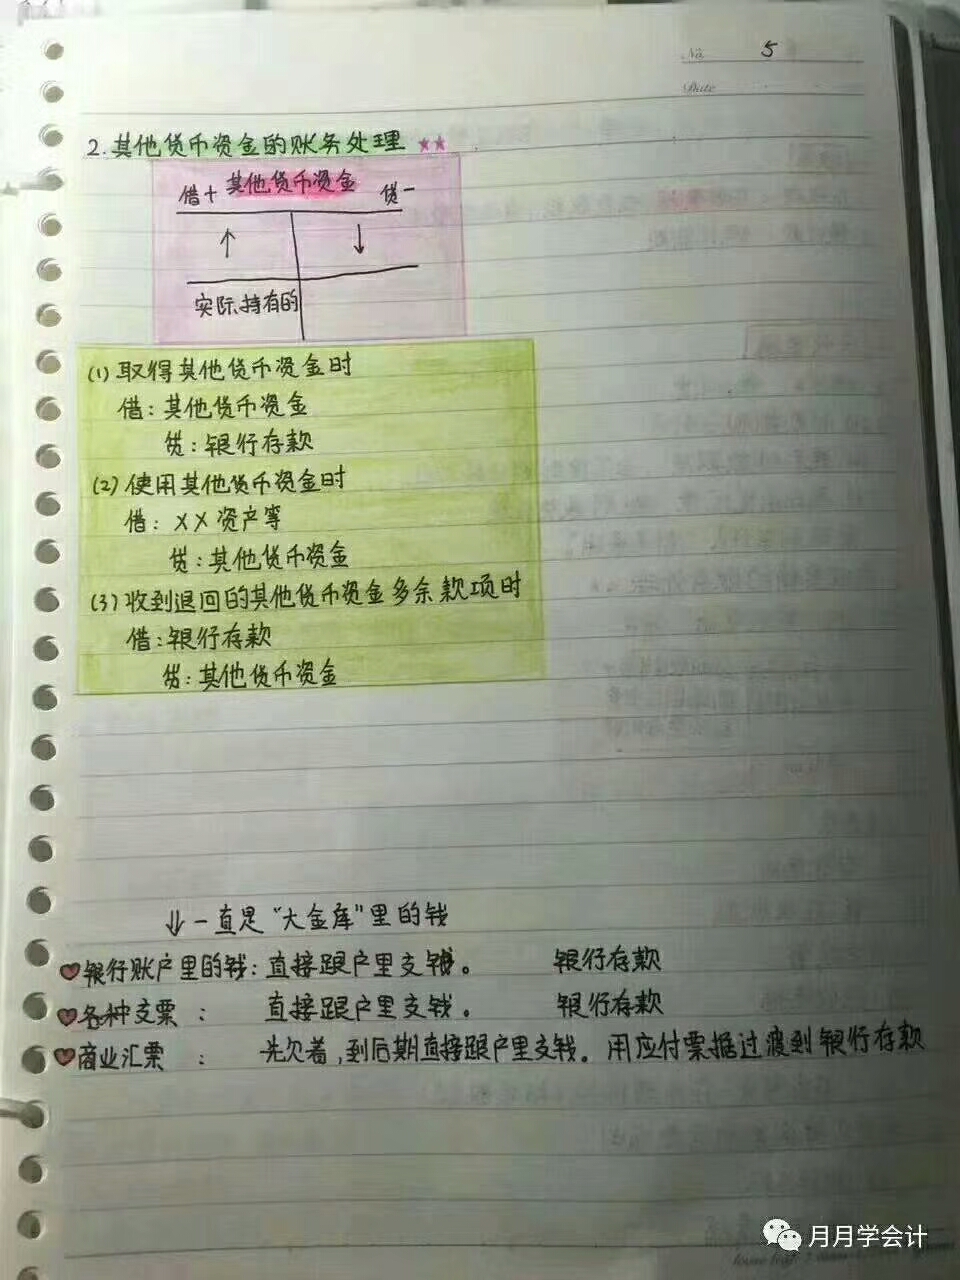 No 5
Date
2.其他货币资金的账务处理 ★★
借+ 其他货币资金 贷-
↑ ↓
实际持有的
(1)取得其他货币资金时
借:其他货币资金
贷:银行存款
(2)使用其他货币资金时
借:XX资产等
贷:其他货币资金
(3)收到退回的其他货币资金多余款项时
借:银行存款
贷:其他货币资金
↓一直是“大金库”里的钱
银行账户里的钱:直接跟户里支钱。 银行存款
各种支票: 直接跟户里支钱。 银行存款
商业汇票: 先欠着,到后期直接跟户里支钱。用应付票据过渡到银行存款
月月学会计